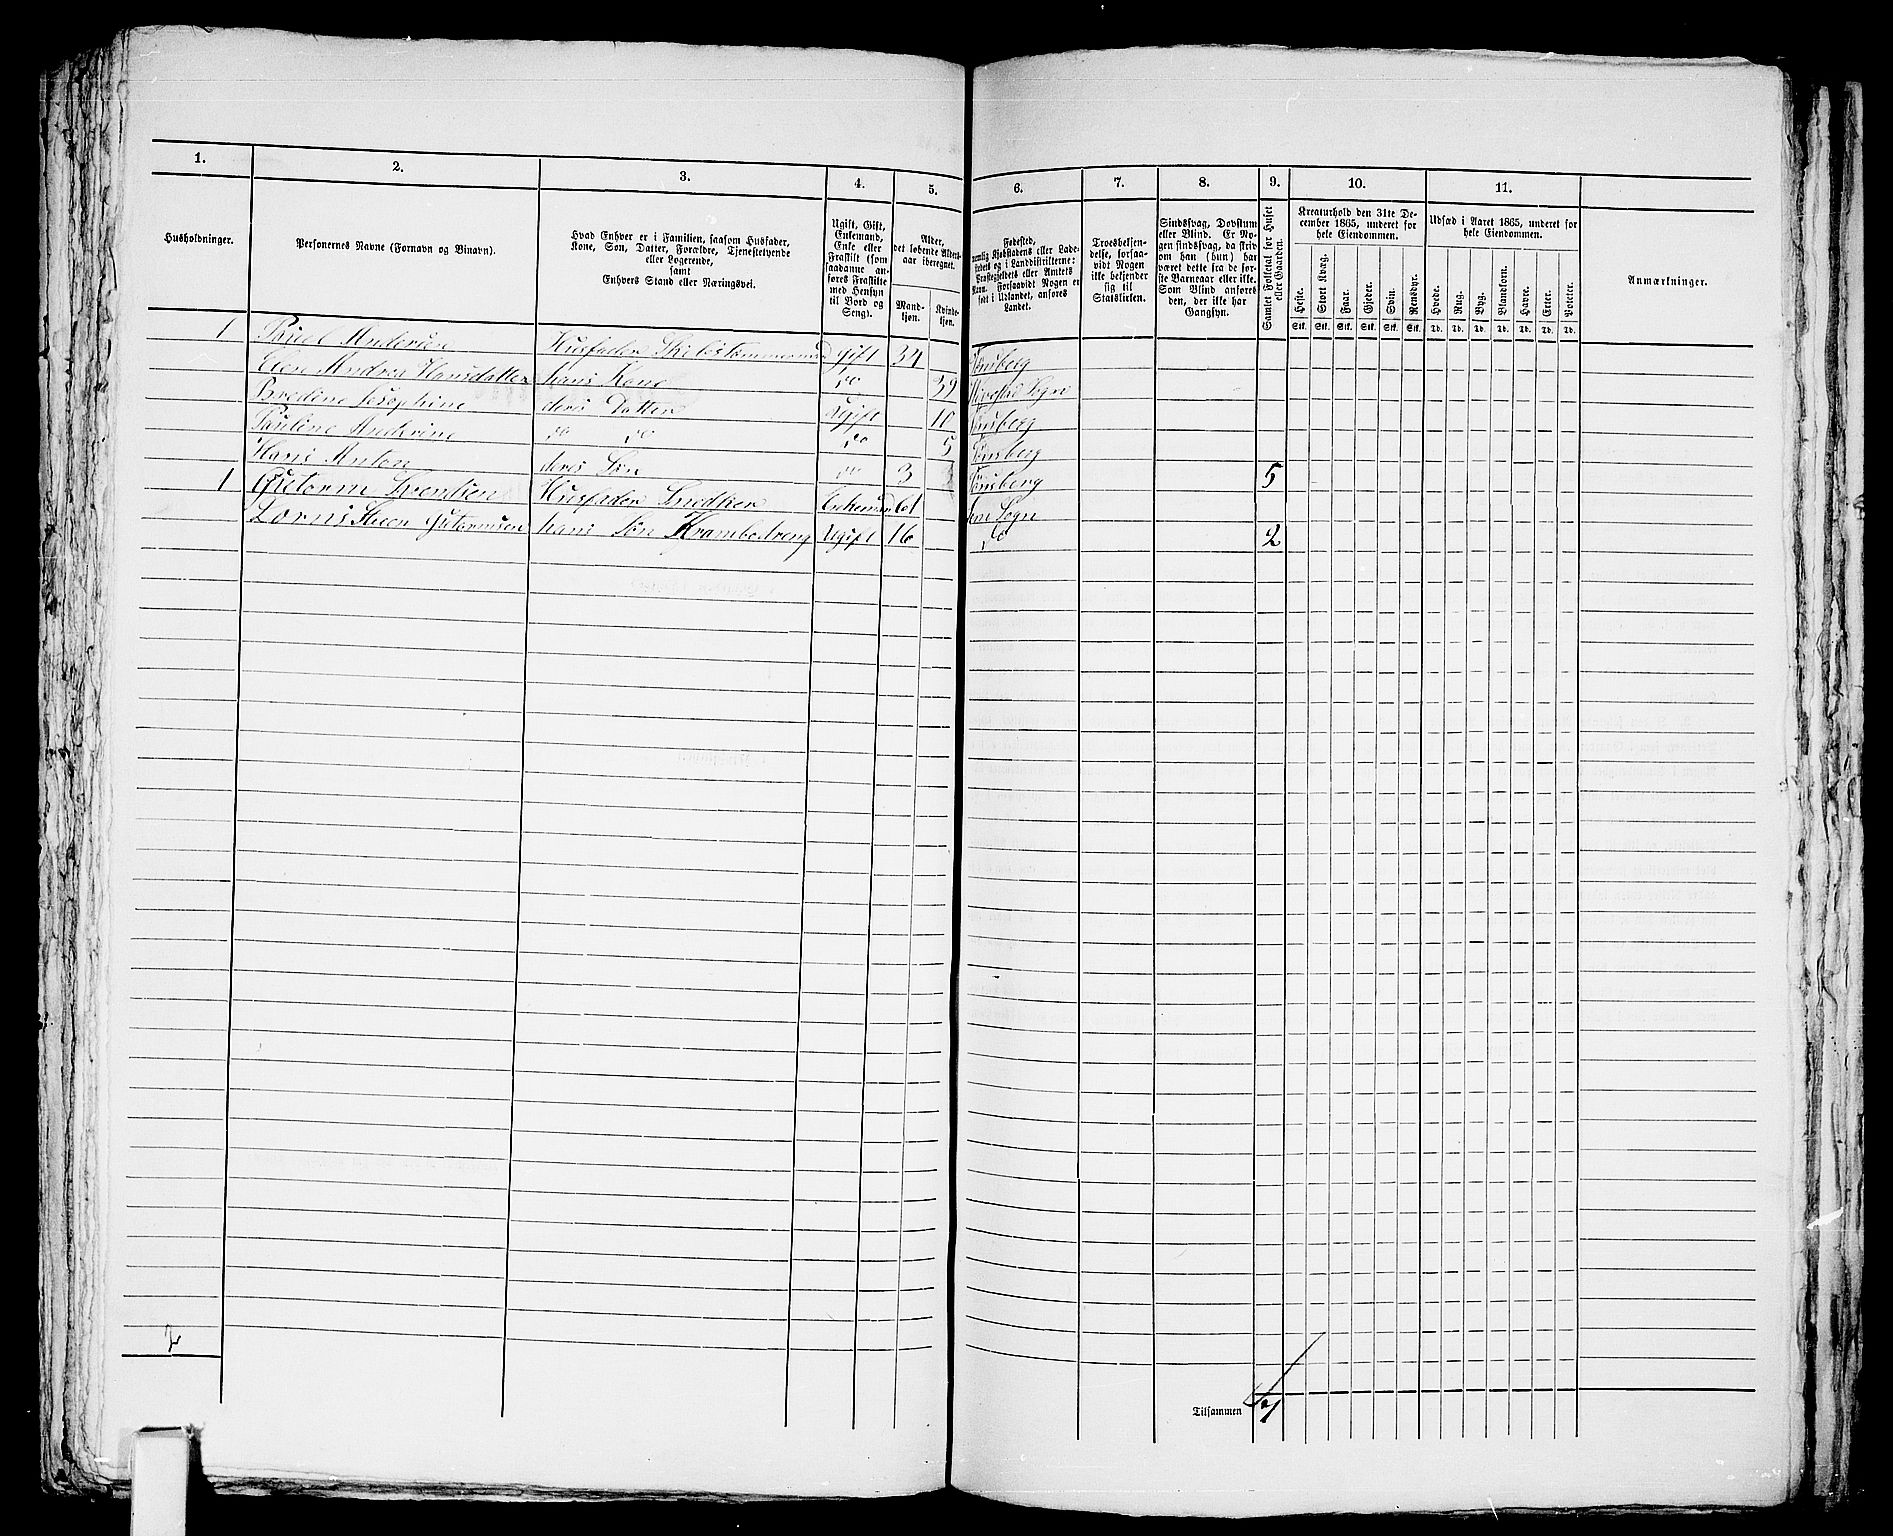 1. 2. 3. 4. 5. 6. 7. 8. 9. 10. 11.
Husholdninger.
Personernes Navne (Fornavn og Binavn).
Hvad Enhver er i Familien, saasom Husfader,
Kone, Søn, Datter, Forældre, Tjenestetyende
eller Logerende,
samt
Enhvers Stand eller Næringsvei.
Ugift, Gift,
Enkemand,
Enke eller
Fraskilt (som
saadanne an-
føres Fraskilte
med Hensyn
til Bord og
Seng).
Alder,
det løbende Alders-
aar iberegnet.
Mand-
kjøn.
Kvinde-
kjøn.
Fødested,
nemlig Kjøbstadens eller Lade-
stedets og i Landdistrikterne:
Præstegjeldets eller Amtets
Navn. Forsaavidt Nogen er
født i Udlandet, anføres
Landet.
Troesbekjen-
delse, forsaa-
vidt Nogen
ikke bekjender
sig til
Statskirken.
Sindssvag, Døvstum
eller Blind. Er No-
gen sindssvag, da skriv
om han (hun) har
været dette fra de før-
ste Barneaar eller ikke.
Som Blind anføres
den, der ikke har
Gangsyn.
Samlet Folketal for Huset
eller Gaarden.
Kreaturhold den 31te De-
cember 1865, underet for
hele Eiendommen.
Heste. Stort Kvæg. Faar. Gjeder. Svin. Rensdyr.
Stk. Stk. Stk. Stk. Stk. Stk.
Udsæd i Aaret 1865, underet for
hele Eiendommen.
Hvede. Rug. Byg. Blandkorn. Havre. Erter. Poteter.
Td. Td. Td. Td. Td. Td. Td.
Anmærkninger.
1 Poul Andersen Husfader Skibstømmermand gift 34 Tønsberg
Elen Andrea Hansdatter hans Kone do 39 Sogn
Bredine Josephine deres Datter Ugift 10 Tønsberg
Pauline Anderine do do do 5 Tønsberg
Hans Anton deres Søn do 3 Tønsberg 5
1 Gutorm Svendsen Husfader Snedker Enkemand 61 Sem Sogn
Steen Gutormsen hans Søn Krambodreng Ugift 16 do 2
2
Tilsammen 7